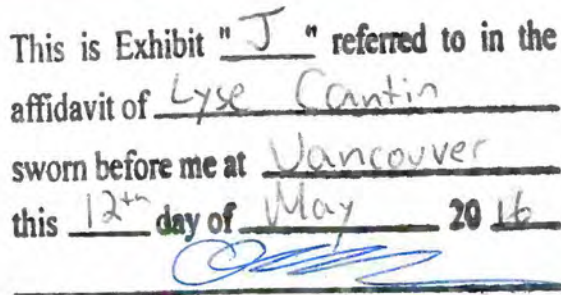 This is Exhibit "J" referred to in the
affidavit of Lyse Cantin
sworn before me at Vancouver
this 12th day of May 2016